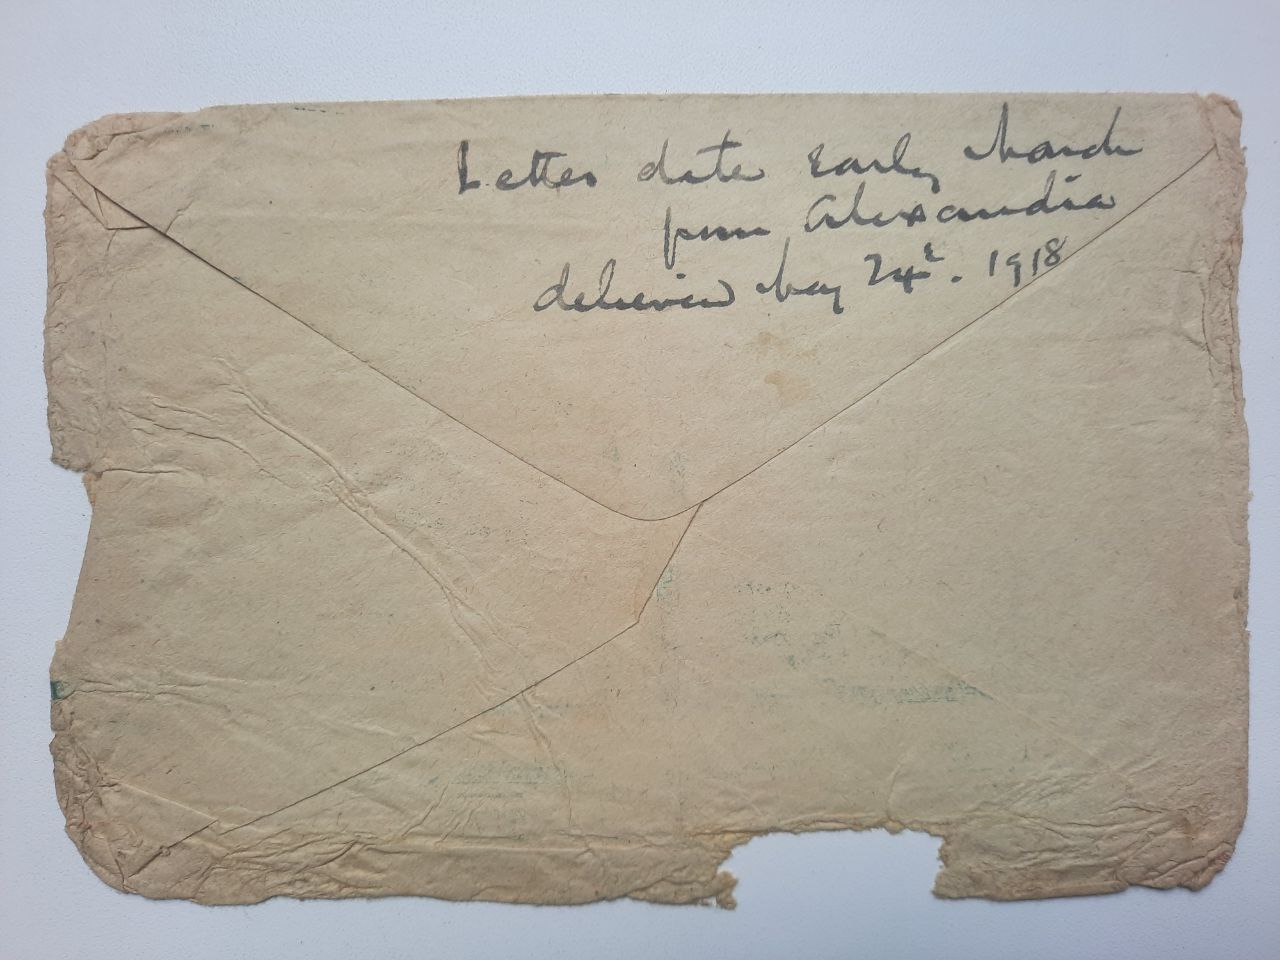 Letter date Early March
from Alexandria
delivered May 24th. 1918